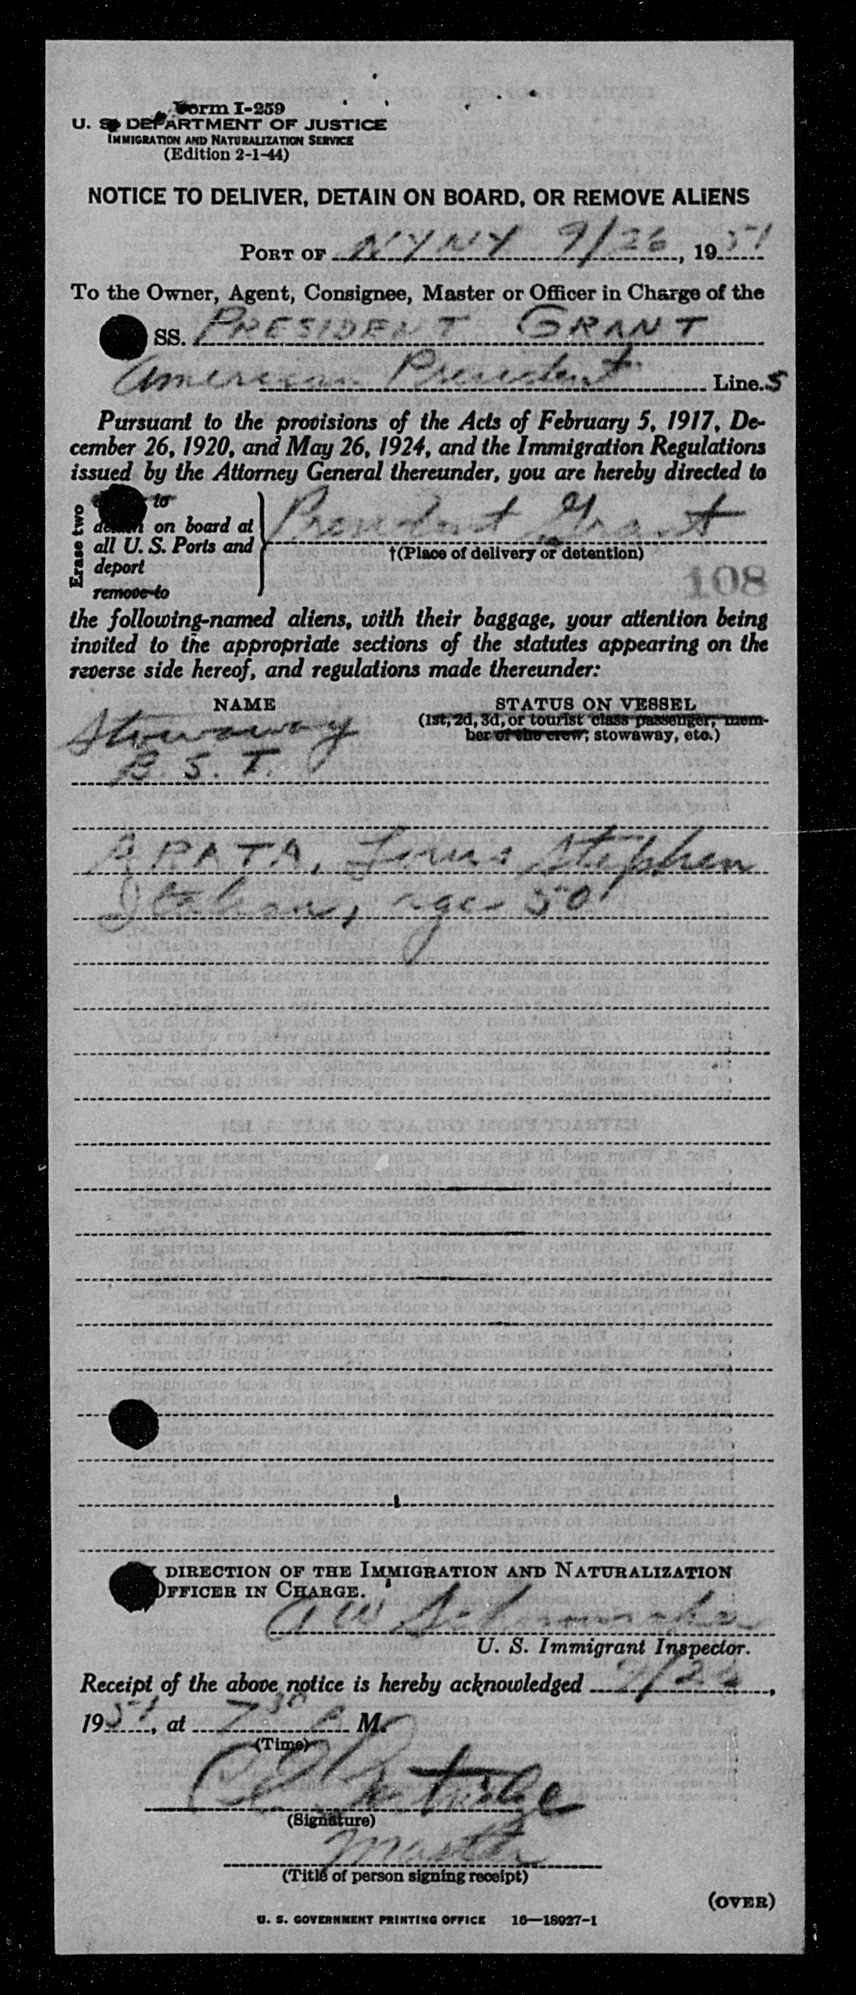 Form I-259
U. S. DEPARTMENT OF JUSTICE
IMMIGRATION AND NATURALIZATION SERVICE
(Edition 2-1-44)
NOTICE TO DELIVER, DETAIN ON BOARD, OR REMOVE ALIENS
PORT OF NYNY 9/26, 1951
To the Owner, Agent, Consignee, Master or Officer in Charge of the
SS. PRESIDENT GRANT
American President Line.s
Pursuant to the provisions of the Acts of February 5, 1917, De-
cember 26, 1920, and May 26, 1924, and the Immigration Regulations
issued by the Attorney General thereunder, you are hereby directed to
Erase two
to
detain on board at
all U. S. Ports and
deport
remove to
President Grant
†(Place of delivery or detention)
108
the following-named aliens, with their baggage, your attention being
invited to the appropriate sections of the statutes appearing on the
reverse side hereof, and regulations made thereunder:
NAME STATUS ON VESSEL
(1st, 2d, 3d, or tourist class passenger, mem-
ber of the crew, stowaway, etc.)
Stowaway
B. S. I.
ARATA, Louis Stephen
Italian, age 50
DIRECTION OF THE IMMIGRATION AND NATURALIZATION
OFFICER IN CHARGE.
A W
U. S. Immigrant Inspector.
Receipt of the above notice is hereby acknowledged 9/26,
1951, at 7 30 P M.
(Time)
(Signature)
Master
(Title of person signing receipt)
(OVER)
U. S. GOVERNMENT PRINTING OFFICE 16—18027-1